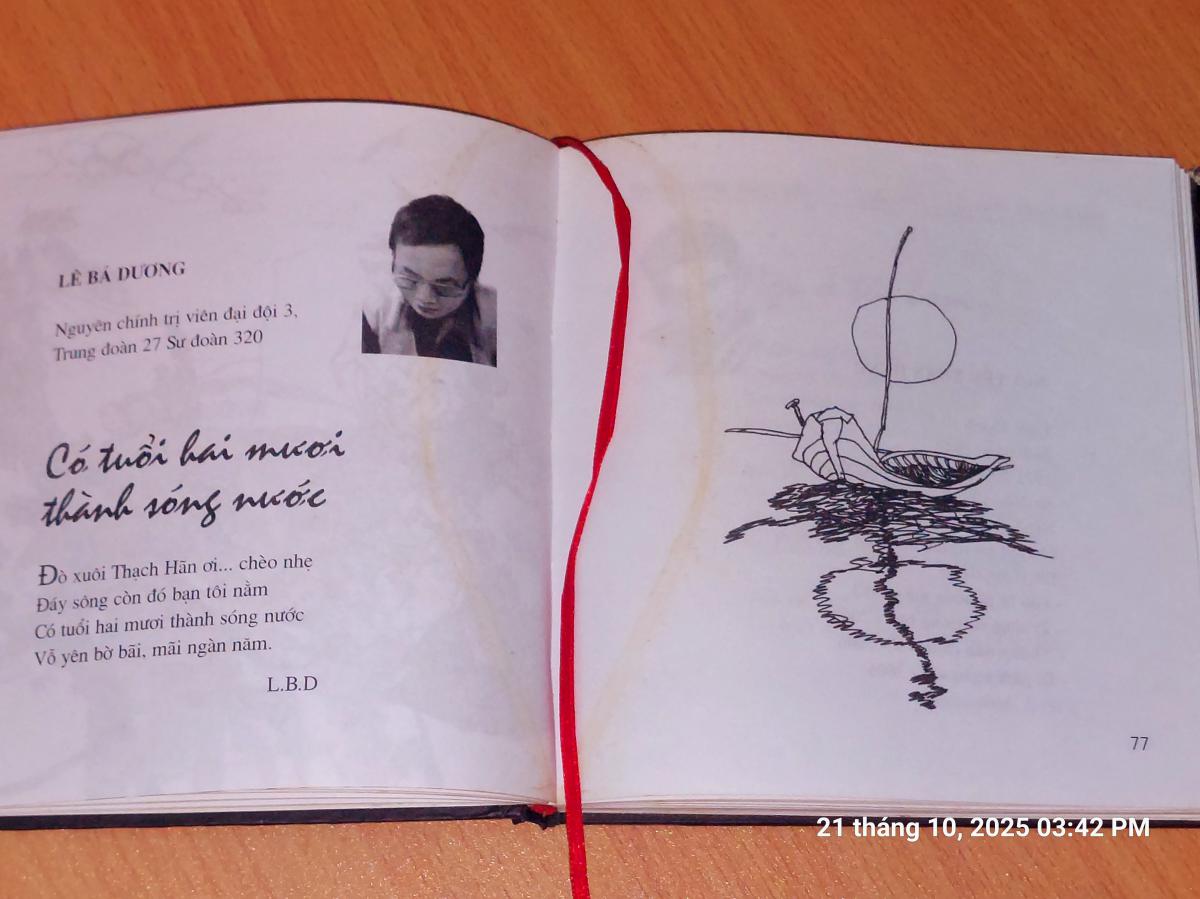 LÊ BÁ DƯƠNG
Nguyên chính trị viên đại đội 3,
Trung đoàn 27 Sư đoàn 320
Có tuổi hai mươi
thành sóng nước
Đò xuôi Thạch Hãn ơi... chèo nhẹ
Đáy sông còn đó bạn tôi nằm
Có tuổi hai mươi thành sóng nước
Vỗ yên bờ bãi, mãi ngàn năm.
L.B.D
77
21 tháng 10, 2025 03:42 PM